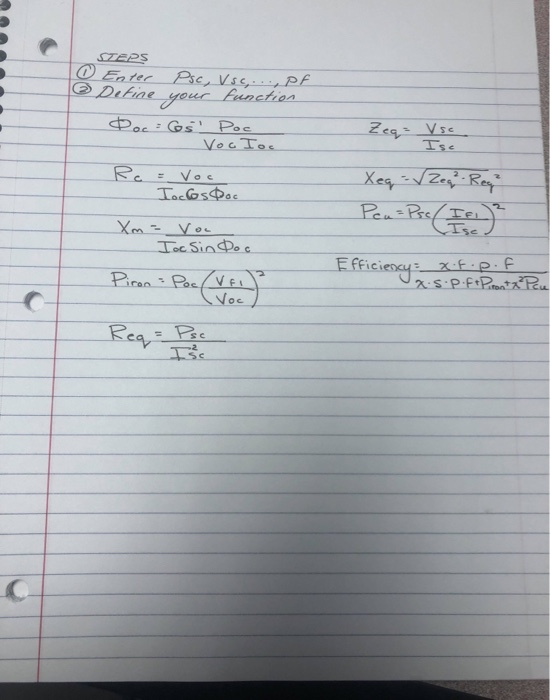 STEPS
① Enter Psc, Vsc,..., pf
② Define your function
Φoc = Cos⁻¹ Poc / Voc Ioc
Rc = Voc / Ioc Cos Φoc
Xm = Voc / Ioc Sin Φoc
Piron = Poc (VF1 / Voc)²
Req = Psc / I²sc
Zeq = Vsc / Isc
Xeq = √Zeq² - Req²
Pcu = Psc (IF1 / Isc)²
Efficiency = x·f·p·f / x·s·p·f + Piron + x²Pcu